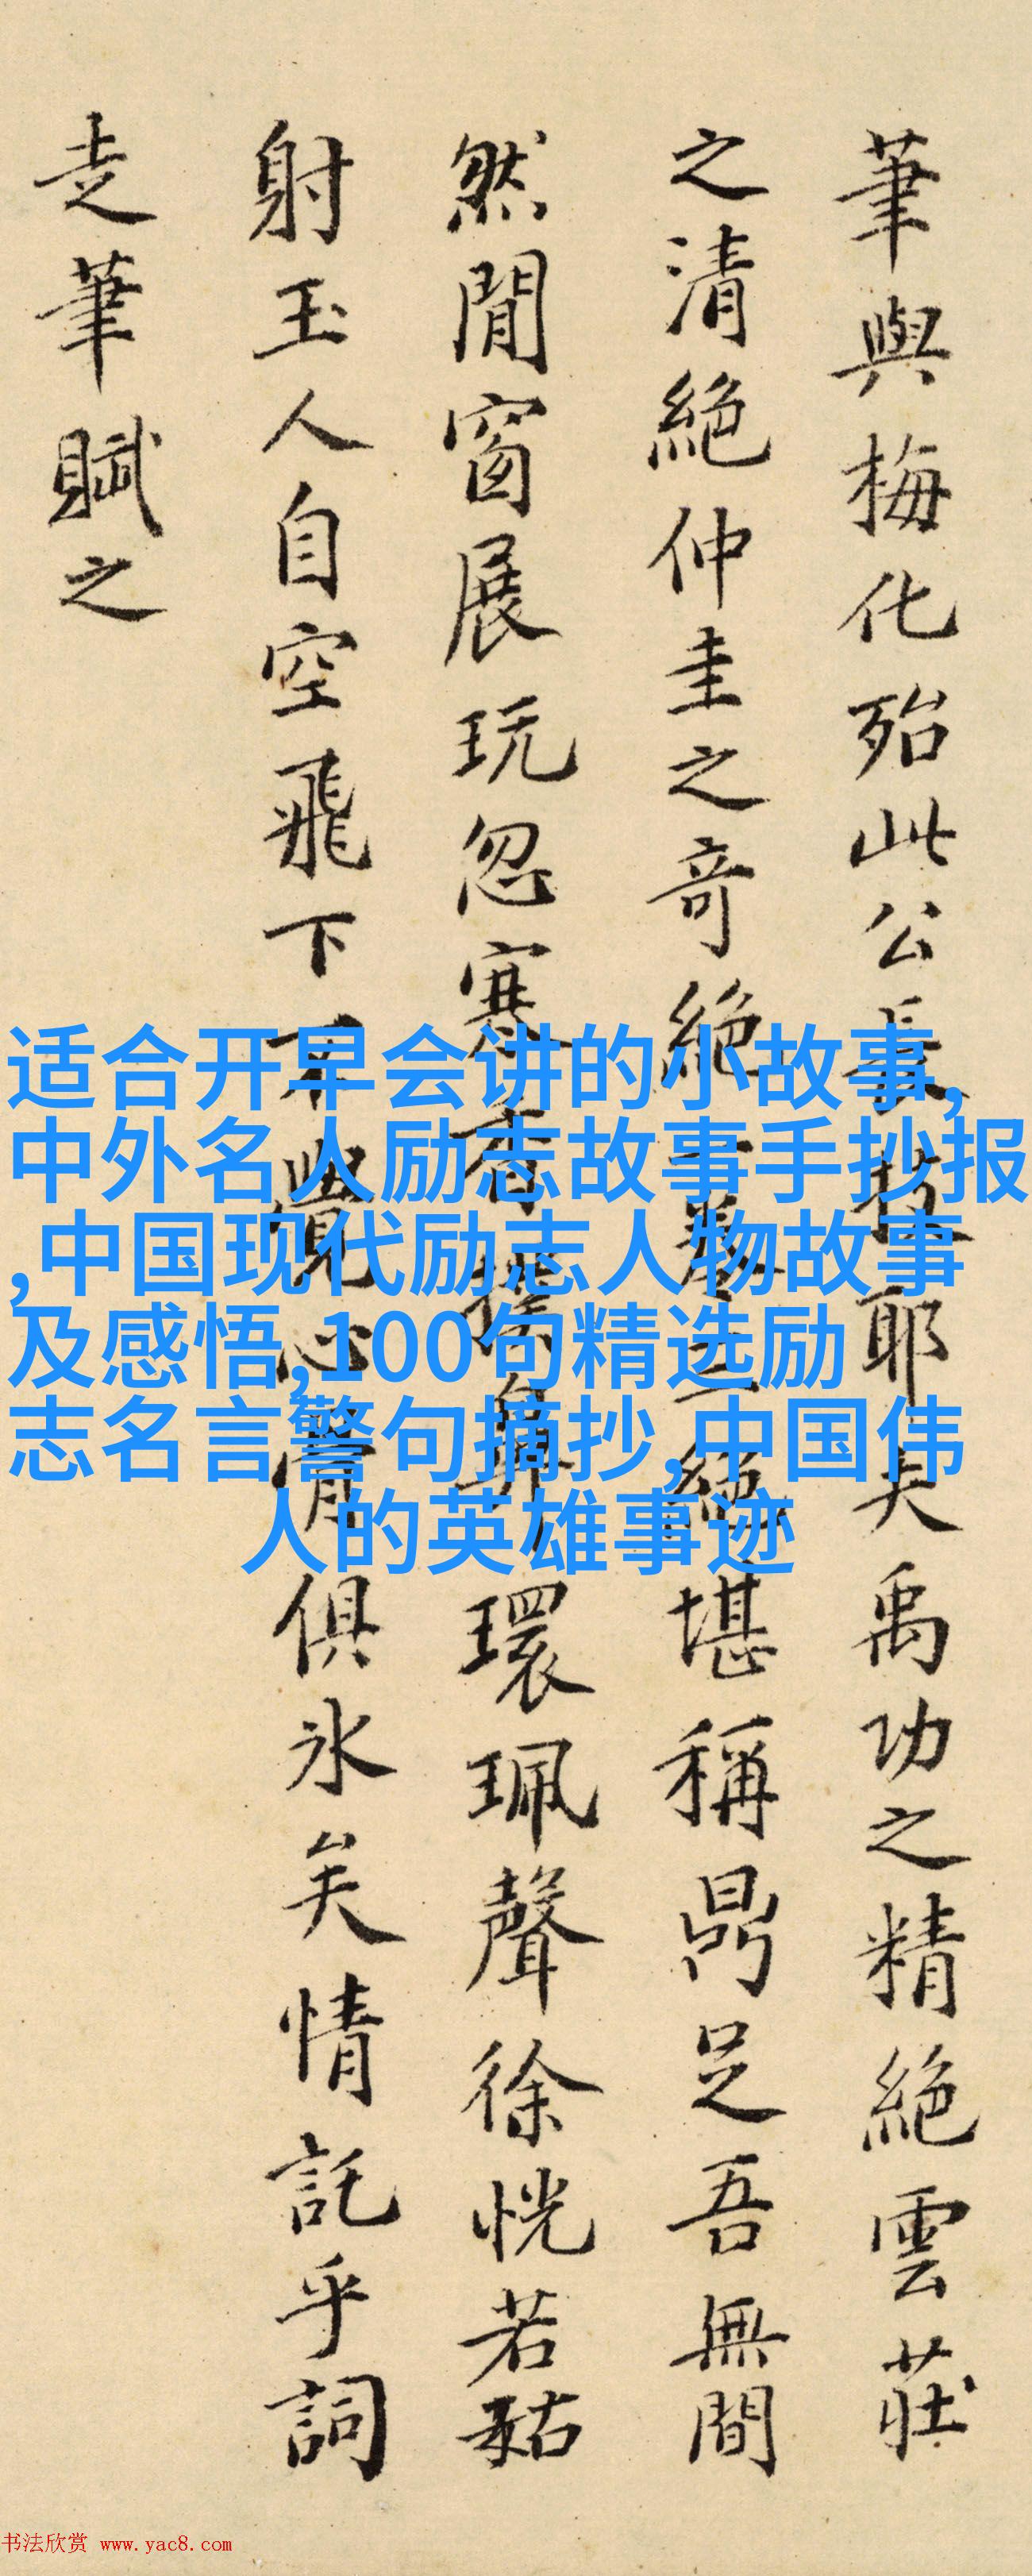 筆與梅化殆此公長技耶夫禹功之精絕雲莊
之清絕仲圭之奇絕堪稱鼎足吾無間
然閒窗展玩忽寒香環珮聲徐恍若䂇
射玉人自空飛下不覺心骨俱氷矣情託乎詞
走筆賦之
适合开早会讲的小故事,
中外名人励志故事手抄报
,中国现代励志人物故事
及感悟,100句精选励
志名言警句摘抄,中国伟
人的英雄事迹
书法欣赏 www.yac8.com